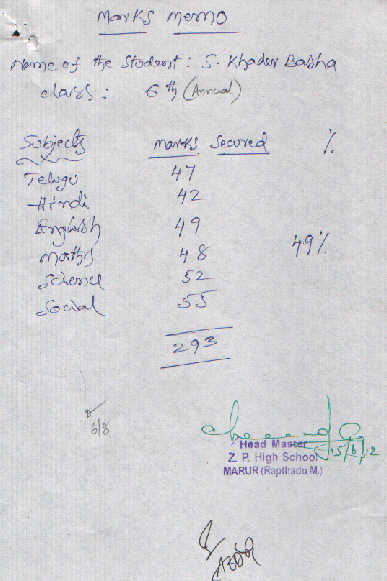 Marks Memo
Name of the Student : S. Khadar Basha
class : 6th (Annual)
Subjects marks secured %
Telugu 47
Hindi 42
English 49
Maths 48 49%
Science 52
Social 55
293
6/8
Head Master
Z. P. High School
MARUR (Rapthadu M.)
15/6/12